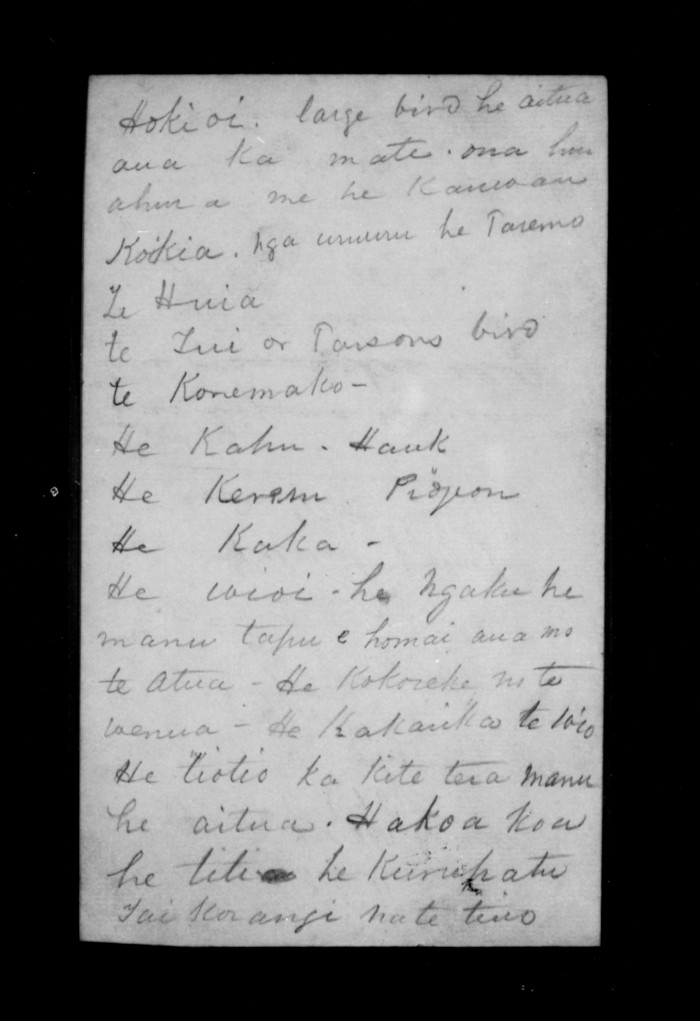 Hokioi. large bird he aitua
ana ka mate. ona huru
ahua me he Kawau
Kokia. nga uruuru he Taremo
Te Huia
te Tui or Parsons bird
te Koremako -
He Kahu. Hauk
He Kereru Pidgeon
He Kaka -
He wioi - he ngaku he
manu tapu e homai ana mo
te Atua - He Kokoreke no te
wenua - He Kakarika te wio
He tiotio ka kite tera manu
he aitua. Hakoa koa
he titi he Kuruhatu
Tai Korangi na te tino